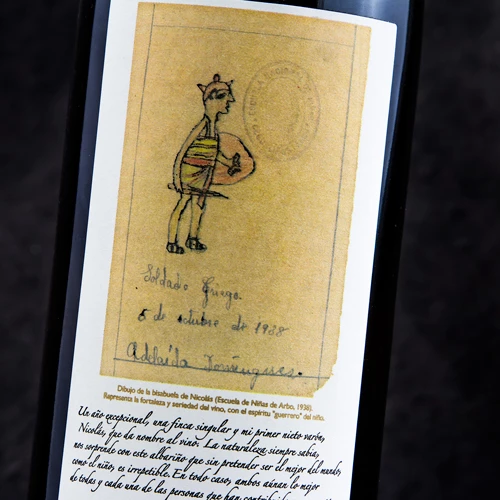 Soldado Griego.
5 de octubre de 1938
Adelaida Domínguez.
Dibujo de la bisabuela de Nicolás (Escuela de Niñas de Arbo, 1938).
Representa la fortaleza y seriedad del vino, con el espíritu "guerrero" del niño.
Un año excepcional, una finca singular y mi primer nieto varón,
Nicolás, que da nombre al vino. La naturaleza siempre sabia,
nos sorprende con este albariño que sin pretender ser el mejor del mundo,
como el niño, es irrepetible. En todo caso, ambos aúnan lo mejor
de todas y cada una de las personas que han contribuido